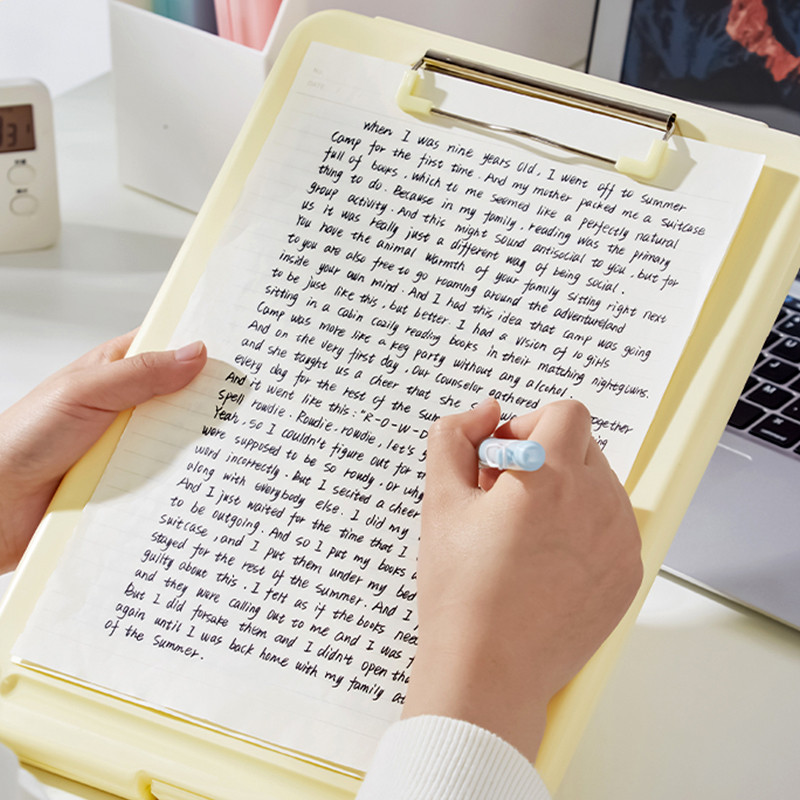 when I was nine years old, I went off to summer
Camp for the first time. And my mother packed me a suitcase
full of books, which to me seemed like a perfectly natural
thing to do. Because in my family, reading was the primary
group activity. And this might sound antisocial to you, but for
us it was really just a different way of being social.
You have the animal warmth of your family sitting right next
to you are also free to go roaming around the adventureland
inside your own mind. And I had this idea that camp was going
to be just like this, but better. I had a vision of 10 girls
sitting in a cabin cozily reading books in their matching nightgowns.
Camp was more like a keg party without any alcohol.
And on the very first day, our counselor gathered together
and she taught us a cheer that she
every day for the rest of the
And it went like this: "R-O-W-D
spell rowdie. Rowdie. rowdie, let's
Yeah, so I couldn't figure out for
were supposed to be so rowdy, or why
word incorrectly. But I secited a cheer
along with everybody else. I did my
And I just waited for the time that I
to be outgoing. And so I put my books
suitcase, and I put them under my bed
stayed for the rest of the summer. And I
guilty about this. I felt as if the books
and they were calling out to me and I was
But I did forsake them and I didn't open
again until I was back home with my family at
of the summer.